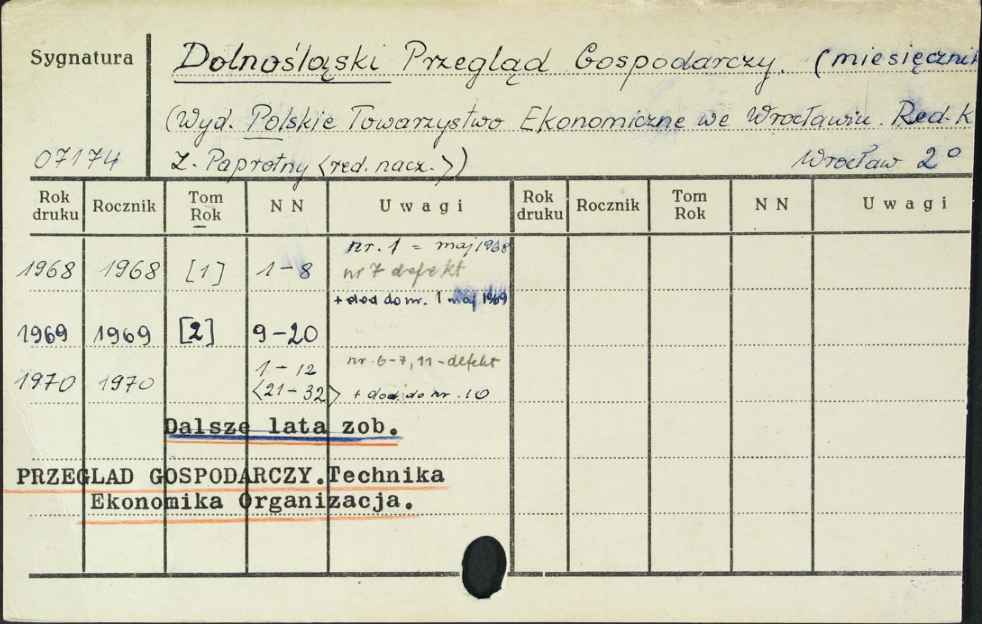 Sygnatura
Dolnośląski Przegląd Gospodarczy. (miesięcznik
(Wyd. Polskie Towarzystwo Ekonomiczne we Wrocławiu. Red. K
07174
Z. Paprotny <red. nacz.>)
Wrocław 2°
Rok druku Rocznik Tom Rok N N Uwagi Rok druku Rocznik Tom Rok N N Uwagi
nr. 1 = maj 1968
1968 1968 [1] 1-8 nr 7 defekt
+ dod do nr. 1 maj 1969
1969 1969 [2] 9-20
1-12 nr. 6-7, 11-defekt
1970 1970 <21-32> + dod. do nr. 10
Dalsze lata zob.
PRZEGLAD GOSPODARCZY.Technika
Ekonomika Organizacja.